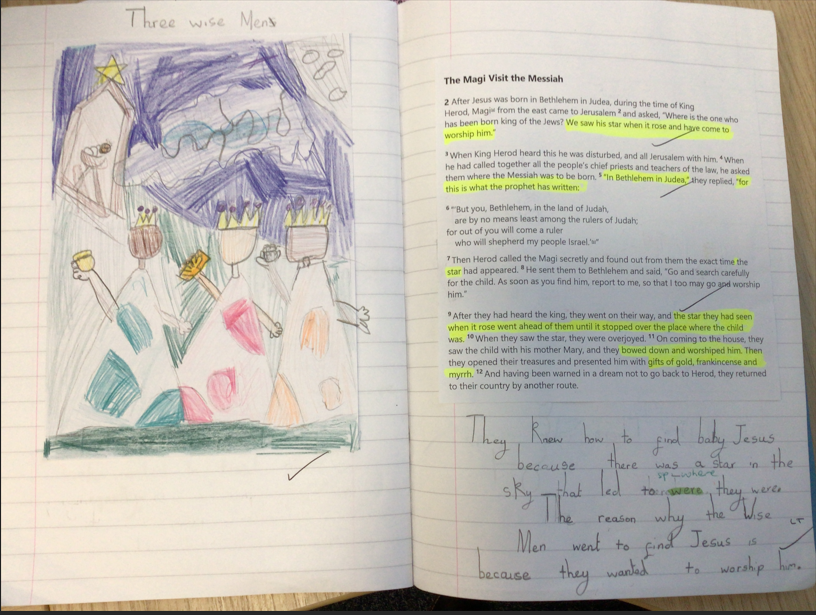 Three wise Mens
The Magi Visit the Messiah
2 After Jesus was born in Bethlehem in Judea, during the time of King
Herod, Magi from the east came to Jerusalem 2 and asked, "Where is the one who
has been born king of the Jews? We saw his star when it rose and have come to
worship him."
3 When King Herod heard this he was disturbed, and all Jerusalem with him. 4 When
he had called together all the people's chief priests and teachers of the law, he asked
them where the Messiah was to be born. 5 "In Bethlehem in Judea," they replied, "for
this is what the prophet has written:
6 "'But you, Bethlehem, in the land of Judah,
are by no means least among the rulers of Judah;
for out of you will come a ruler
who will shepherd my people Israel.'"
7 Then Herod called the Magi secretly and found out from them the exact time the
star had appeared. 8 He sent them to Bethlehem and said, "Go and search carefully
for the child. As soon as you find him, report to me, so that I too may go and worship
him."
9 After they had heard the king, they went on their way, and the star they had seen
when it rose went ahead of them until it stopped over the place where the child
was. 10 When they saw the star, they were overjoyed. 11 On coming to the house, they
saw the child with his mother Mary, and they bowed down and worshiped him. Then
they opened their treasures and presented him with gifts of gold, frankincense and
myrrh. 12 And having been warned in a dream not to go back to Herod, they returned
to their country by another route.
They Know how to find baby Jesus
because there was a star in the
sp-where
sky that led to were they were.
The reason why the Wise
LT
Men went to find Jesus is
because they wanted to worship him.